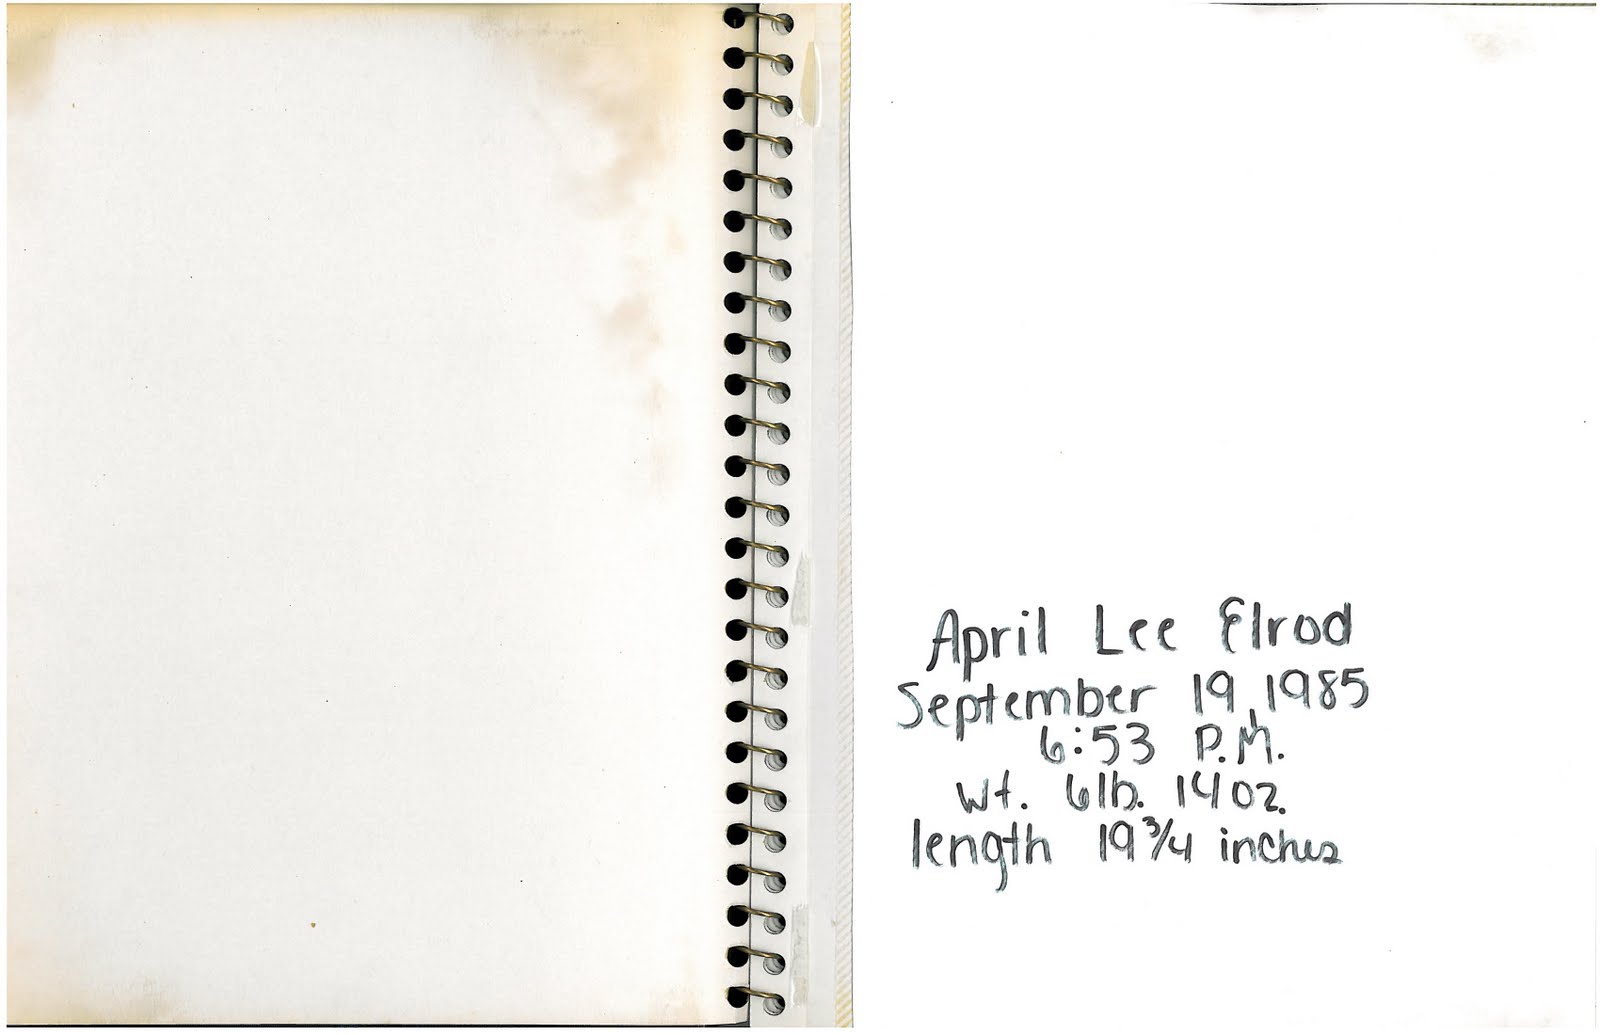 April Lee Elrod
September 19, 1985
6:53 P.M.
wt. 6lb. 14oz.
length 19 3/4 inches